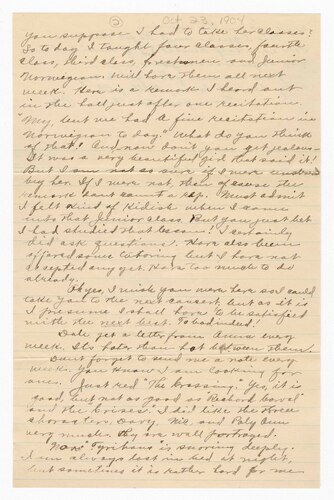 ② Oct 23, 1904
you suppose I had to take her classes?
So to day I taught four classes, fourth
class, third class, freshmen and Junior
Norwegian. Will have them all next
week. Here is a remark I heard out
in the hall just after one recitation.
"My, but we had a fine recitation in
Norwegian to day." What do you think
of that! And now don't you get jealous
It was a very beautiful girl that said it!
But I am not so sure if I were
by her. If I were not then of course the
remark doesn't count a rap. Must admit
I felt kind of Kidish when I came
into that Junior class. But you just bet
I had studied that lesson! I certainly
did ask questions! Have also been
offered some tutoring but I have not
accepted any yet. Have too much to do
already.
Oh yes, I wish you were here so I could
take you to the next concert, but as it is
I presume I shall have to be satisfied
with the next best. To bad indeed!
Date get a letter from Anna every
week. It's pater than hot between them!
Don't forget to send me a note every
week. You know I am looking for
one. Just read "The Crossing." Yes, it is
good, but not as good as Richard Carvel
and "The Crisis." I did like the three
characters, Davy, Nic, and Poly Ann
very much. They are well portrayed.
Now is snoring deeply.
I am always last in bed at night,
but sometimes it is rather hard for me